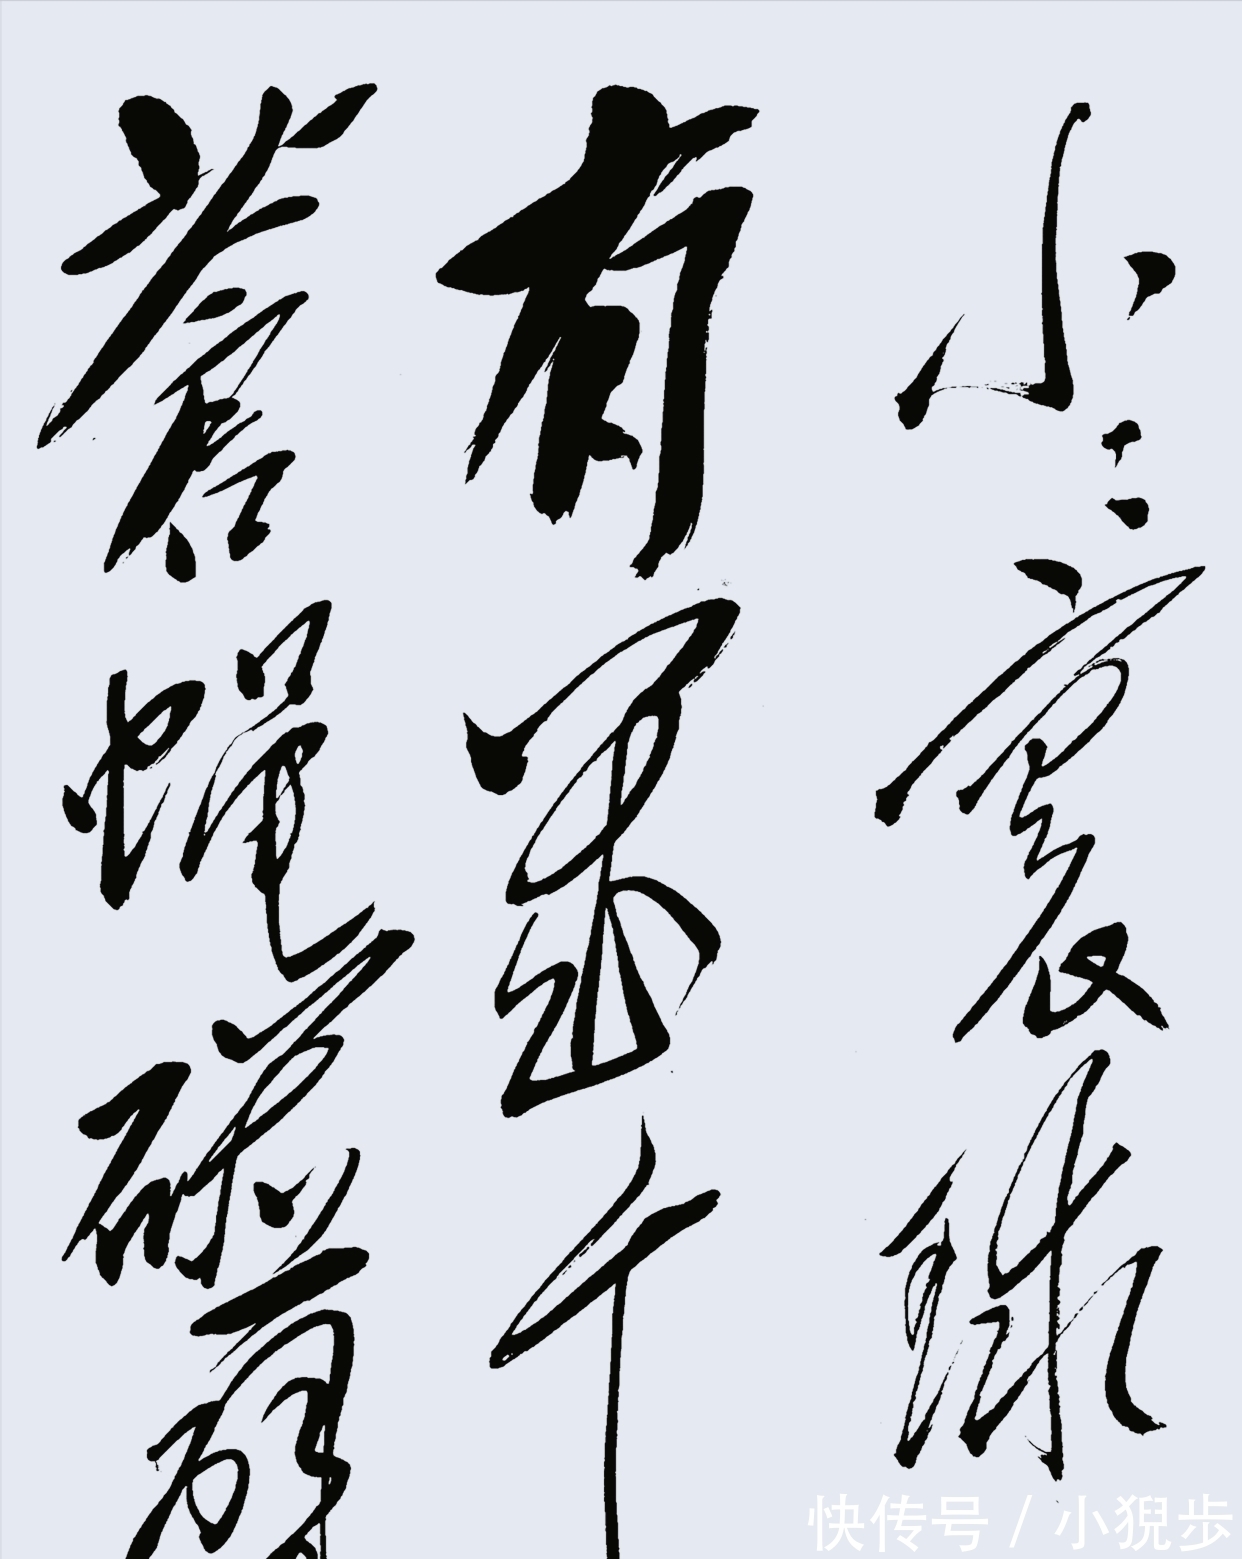 小小寰球
有几个
苍蝇碰壁
快传号 / 小猊步